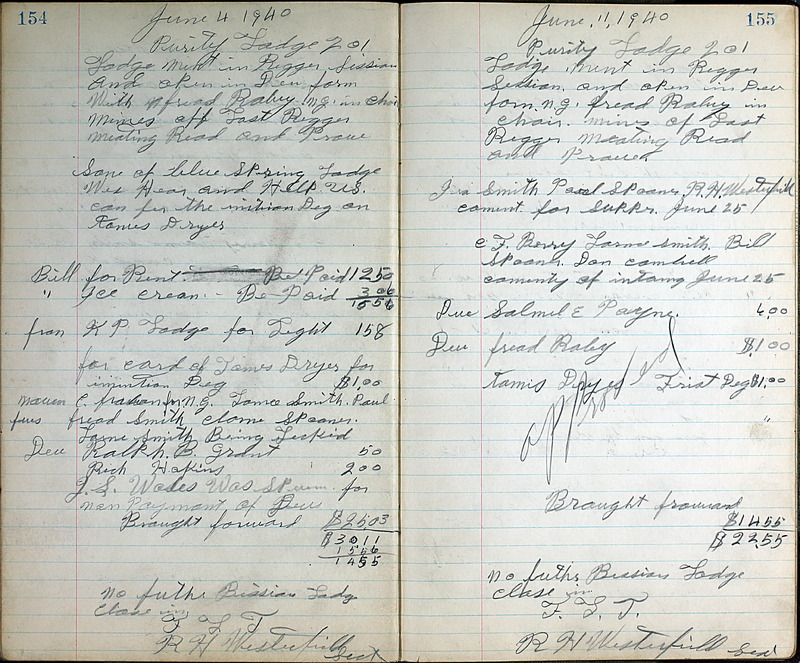 154
June 4 1940
Purity Lodge 201
Lodge ment in Regger Session
and open in Deu form
With fread Raby N.G. in chair
Mines off Last Regger
meating Read and Prove
Sone of blue Spring Lodge
Wes Hear and Help us.
can fer the inition Deg on
James Dryer
Bill for Rent. Be Paid 12 50
" Ice crean - Be Paid 3 06
15 56
from K P. Lodge for Light 1 58
for card of James Dryer for
inintion Deg $1,00
for N.G. James Smith. Paul
fread Smith clome Spooner.
Jame Smith Being
Deu Ralph B. Grant 50
Rich Hakins 2 00
J. S. Wades Was for
non Payment of Deus
Braught forward $25,03
$30 11
15 56
14 55
no futhe Bission Lodge
Close in
F. L. T
R H Westerfill Sect
155
June, 11, 1940
Purity Lodge 201
Lodge ment in Regger
Session and open in Deu
form N.G. fread Raby in
chair. mines of Last
Regger meating Read
and Proved
Ira Smith Paul Spooner R. H. Westerfild
coment for Supper June 25
C. F. Berry Jame Smith Bill
Spooner. Dan cambell
comenty of intang June 25
Deu Salmel E Payne. 6,00
Deu fread Raby $1.00
James Dryer Frist Deg $1,00
"
approved
Braught froward
$14 55
$22 55
no futhe Bission Lodge
Close in
F. L. T.
R H Westerfill Sect